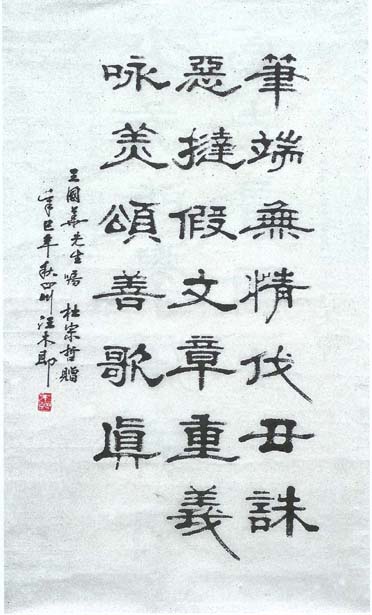 筆端無情伐丑誅
惡撻假文章重義
咏美頌善歌眞
王國華先生 杜宗哲贈
辛巳年秋四川汪木